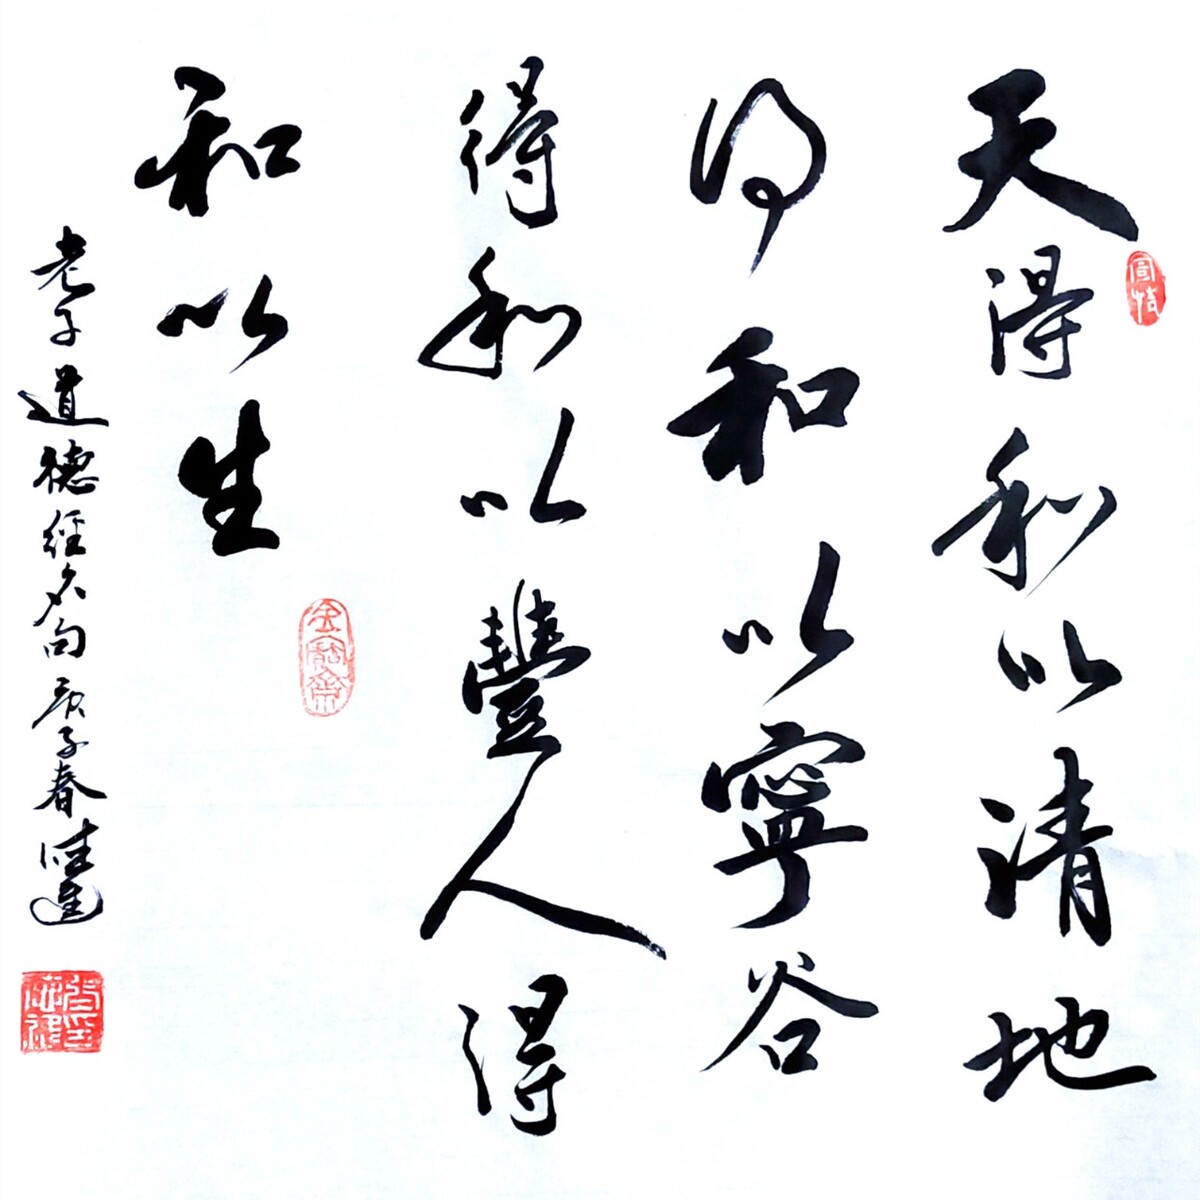 天得和以清地
得和以寧谷
得和以豐人得
和以生
老子道德經名句庚子春陸進